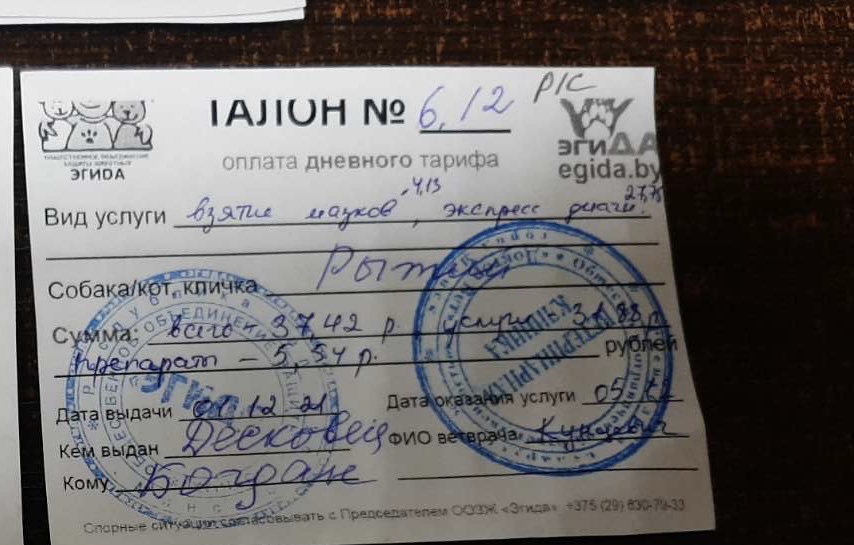 ТАЛОН № 6,12 Р/С
ЭГИДА
оплата дневного тарифа
ЭГИДА
egida.by
Вид услуги взятие мазков 4,13, экспресс диагн. 27,75
Собака/кот, кличка Рыжий
Сумма: всего 37,42 р. услуги - 31,88 р
препараты - 5,54 р. рублей
Дата выдачи 01.12.21 Дата оказания услуги 05
Кем выдан Десковец ФИО ветврача
Кому Богдан
Спорные ситуации согласовывать с Председателем ООЗЖ «Эгида» +375 (29) 630-79-33